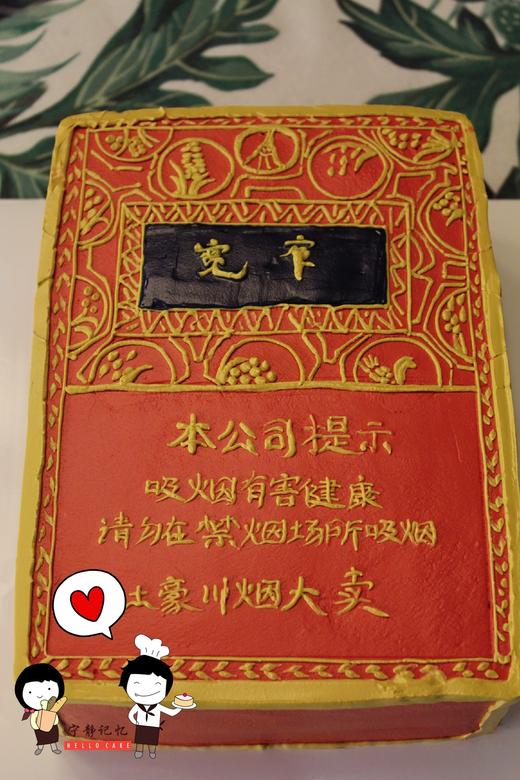 宽窄
本公司提示
吸烟有害健康
请勿在禁烟场所吸烟
土豪川烟大卖
宁静记忆
HELLO CAKE